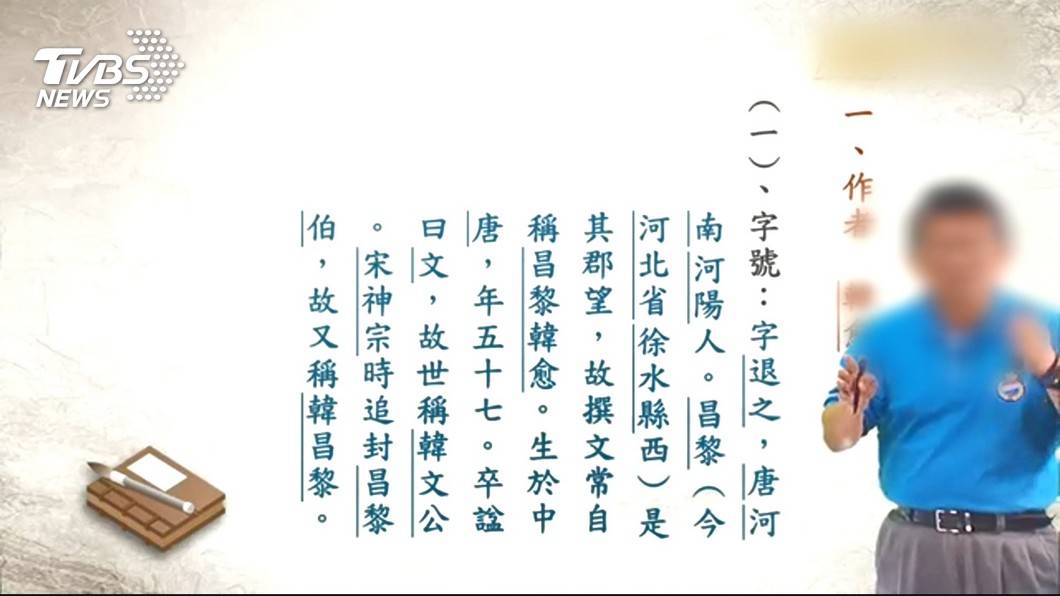 TVBS
NEWS
一、作者 韓愈
(一)、字號：字退之，唐河
南河陽人。昌黎(今
河北省徐水縣西)是
其郡望，故撰文常自
稱昌黎韓愈。生於中
唐，年五十七。卒諡
曰文，故世稱韓文公
。宋神宗時追封昌黎
伯，故又稱韓昌黎。